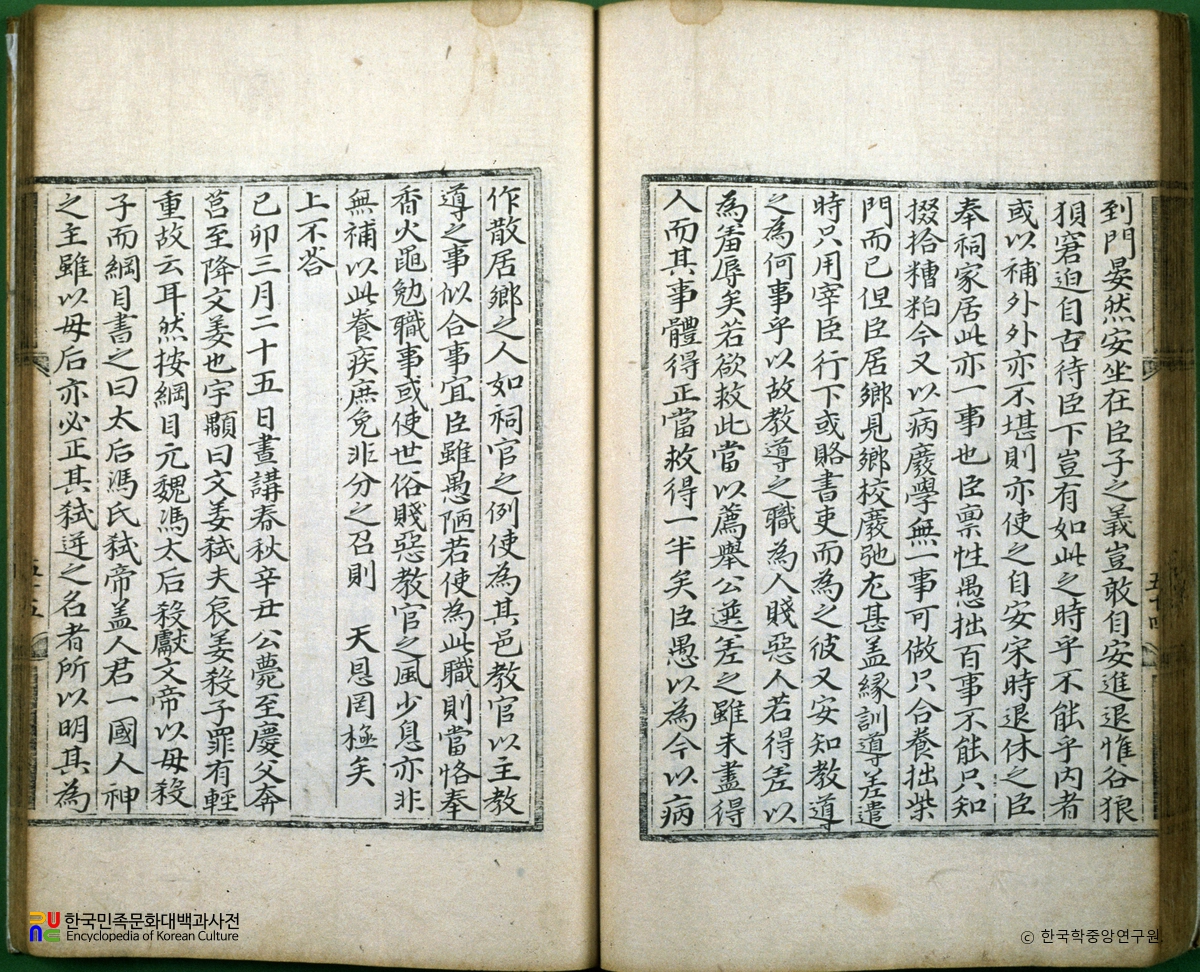 到門晏然安坐在臣子之義豈敢自安進退惟谷狼
狽窘迫自古待臣下豈有如此之時乎不能乎內者
或以補外外亦不堪則亦使之自安宋時退休之臣
奉祠家居此亦一事也臣禀性愚拙百事不能只知
掇拾糟粕今又以病廢學無一事可做只合養拙柴
門而已但臣居鄉見鄉校廢弛尤甚盖緣訓導差遣
時只用宰臣行下或賂書吏而為之彼又安知教導
之為何事乎以故教導之職為人賤惡人若得差以
為羞辱矣若欲救此當以薦舉公選差之雖未盡得
人而其事體得正當救得一半矣臣愚以為今以病
五十四
作散居鄉之人如祠官之例使為其邑教官以主教
導之事似合事宜臣雖愚陋若使為此職則當恪奉
香火黽勉職事或使世俗賤惡教官之風少息亦非
無補以此養疾庶免非分之召則 天恩罔極矣
上不答
己卯三月二十五日晝講春秋辛丑公薨至慶父奔
莒至降文姜也宇顒曰文姜弑夫哀姜殺子罪有輕
重故云耳然按綱目元魏馮太后殺獻文帝以母殺
子而綱目書之曰太后馮氏弑帝盖人君一國人神
之主雖以母后亦必正其弑逆之名者所以明其為
五十五
한국민족문화대백과사전
Encyclopedia of Korean Culture
ⓒ 한국학중앙연구원